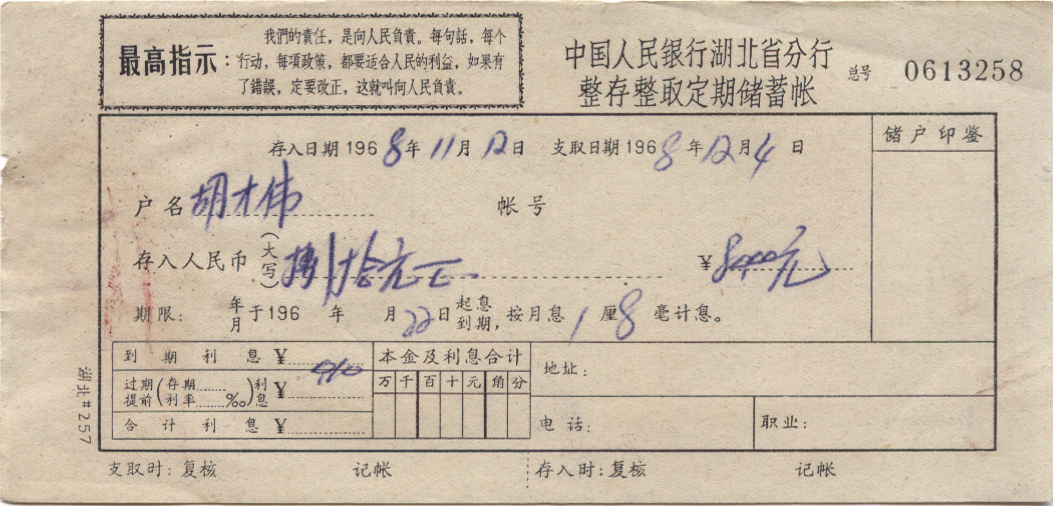 最高指示：
我們的責任，是向人民負責。每句話，每个
行动，每項政策，都要适合人民的利益，如果有
了錯誤，定要改正，这就叫向人民負責。
中国人民银行湖北省分行
整存整取定期储蓄帐
总号 0613258
存入日期 1968年11月12日 支取日期 1968年12月4日
储户印鉴
户名 胡才伟 帐号
存入人民币（大写） 捌拾元 ¥ 元
期限： 年月 于196 年 月22日 起息到期，按月息1厘8毫计息。
到期利息 ¥
过期提前（存期 利率 ‰）利息 ¥
合计利息 ¥
本金及利息合计
万 千 百 十 元 角 分
地址：
电话：
职业：
湖北#257
支取时：复核 记帐 存入时：复核 记帐